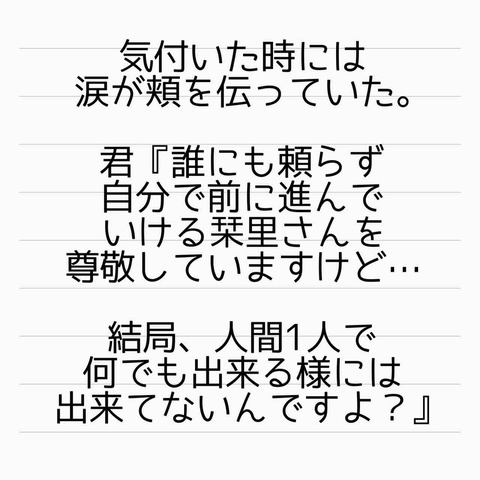 気付いた時には
涙が頬を伝っていた。
君『誰にも頼らず
自分で前に進んで
いける栞里さんを
尊敬していますけど…
結局、人間1人で
何でも出来る様には
出来てないんですよ？』